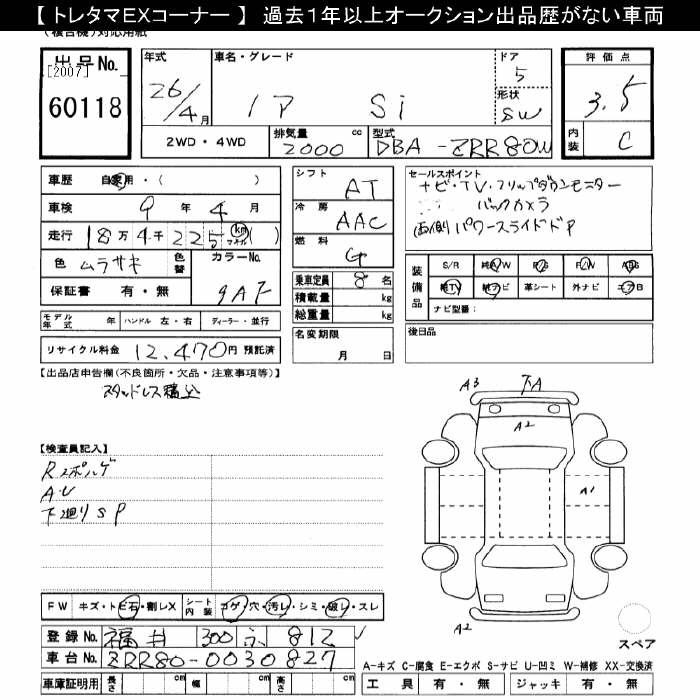 【 トレタマEXコーナー 】 過去1年以上オークション出品歴がない車両
(複合機)対応用紙
出品No. [2007] 60118
年式 26/4月
車名・グレード ノア Si
ドア 5
形状 SW
評価点 3.5
内装 C
2WD・4WD
排気量 2000 cc
型式 DBA-ZRR80W
車歴 自家用・( )
車検 9年 4月
走行 18万4千225 km マイル ( )
色 ムラサキ 色替 カラーNo. 9AF
保証書 有・無
モデル年式 年 ハンドル 左・右 ディーラー・並行
リサイクル料金 12,470円 預託済
シフト AT
冷房 AAC
燃料 G
乗車定員 8名
積載量 kg
総重量 kg
名変期限 月 日
セールスポイント
ナビ・TV・フリップダウンモニター
バックカメラ
両側パワースライドドア
装備品 S/R 純AW P/S P/W ABS
純TV 純ナビ 革シート 外ナビ エアB
ナビ型番:
後日品
【出品店申告欄(不良箇所・欠品・注意事項等)】
スタッドレス積込
【検査員記入】
Rスポハゲ
AU
下廻りSP
A3 下A
A2
A1
A2
スペア
FW キズ・トビ石・割レX シート内装 コゲ・穴・汚レ・シミ・破レ・スレ
登録No. 福井 300 ふ 812
車台No. ZRR80-0030827
車庫証明用 長さ cm 幅 cm 高さ cm
A-キズ C-腐食 E-エクボ S-サビ U-凹ミ W-補修 XX-交換済
工具 有・無 ジャッキ 有・無